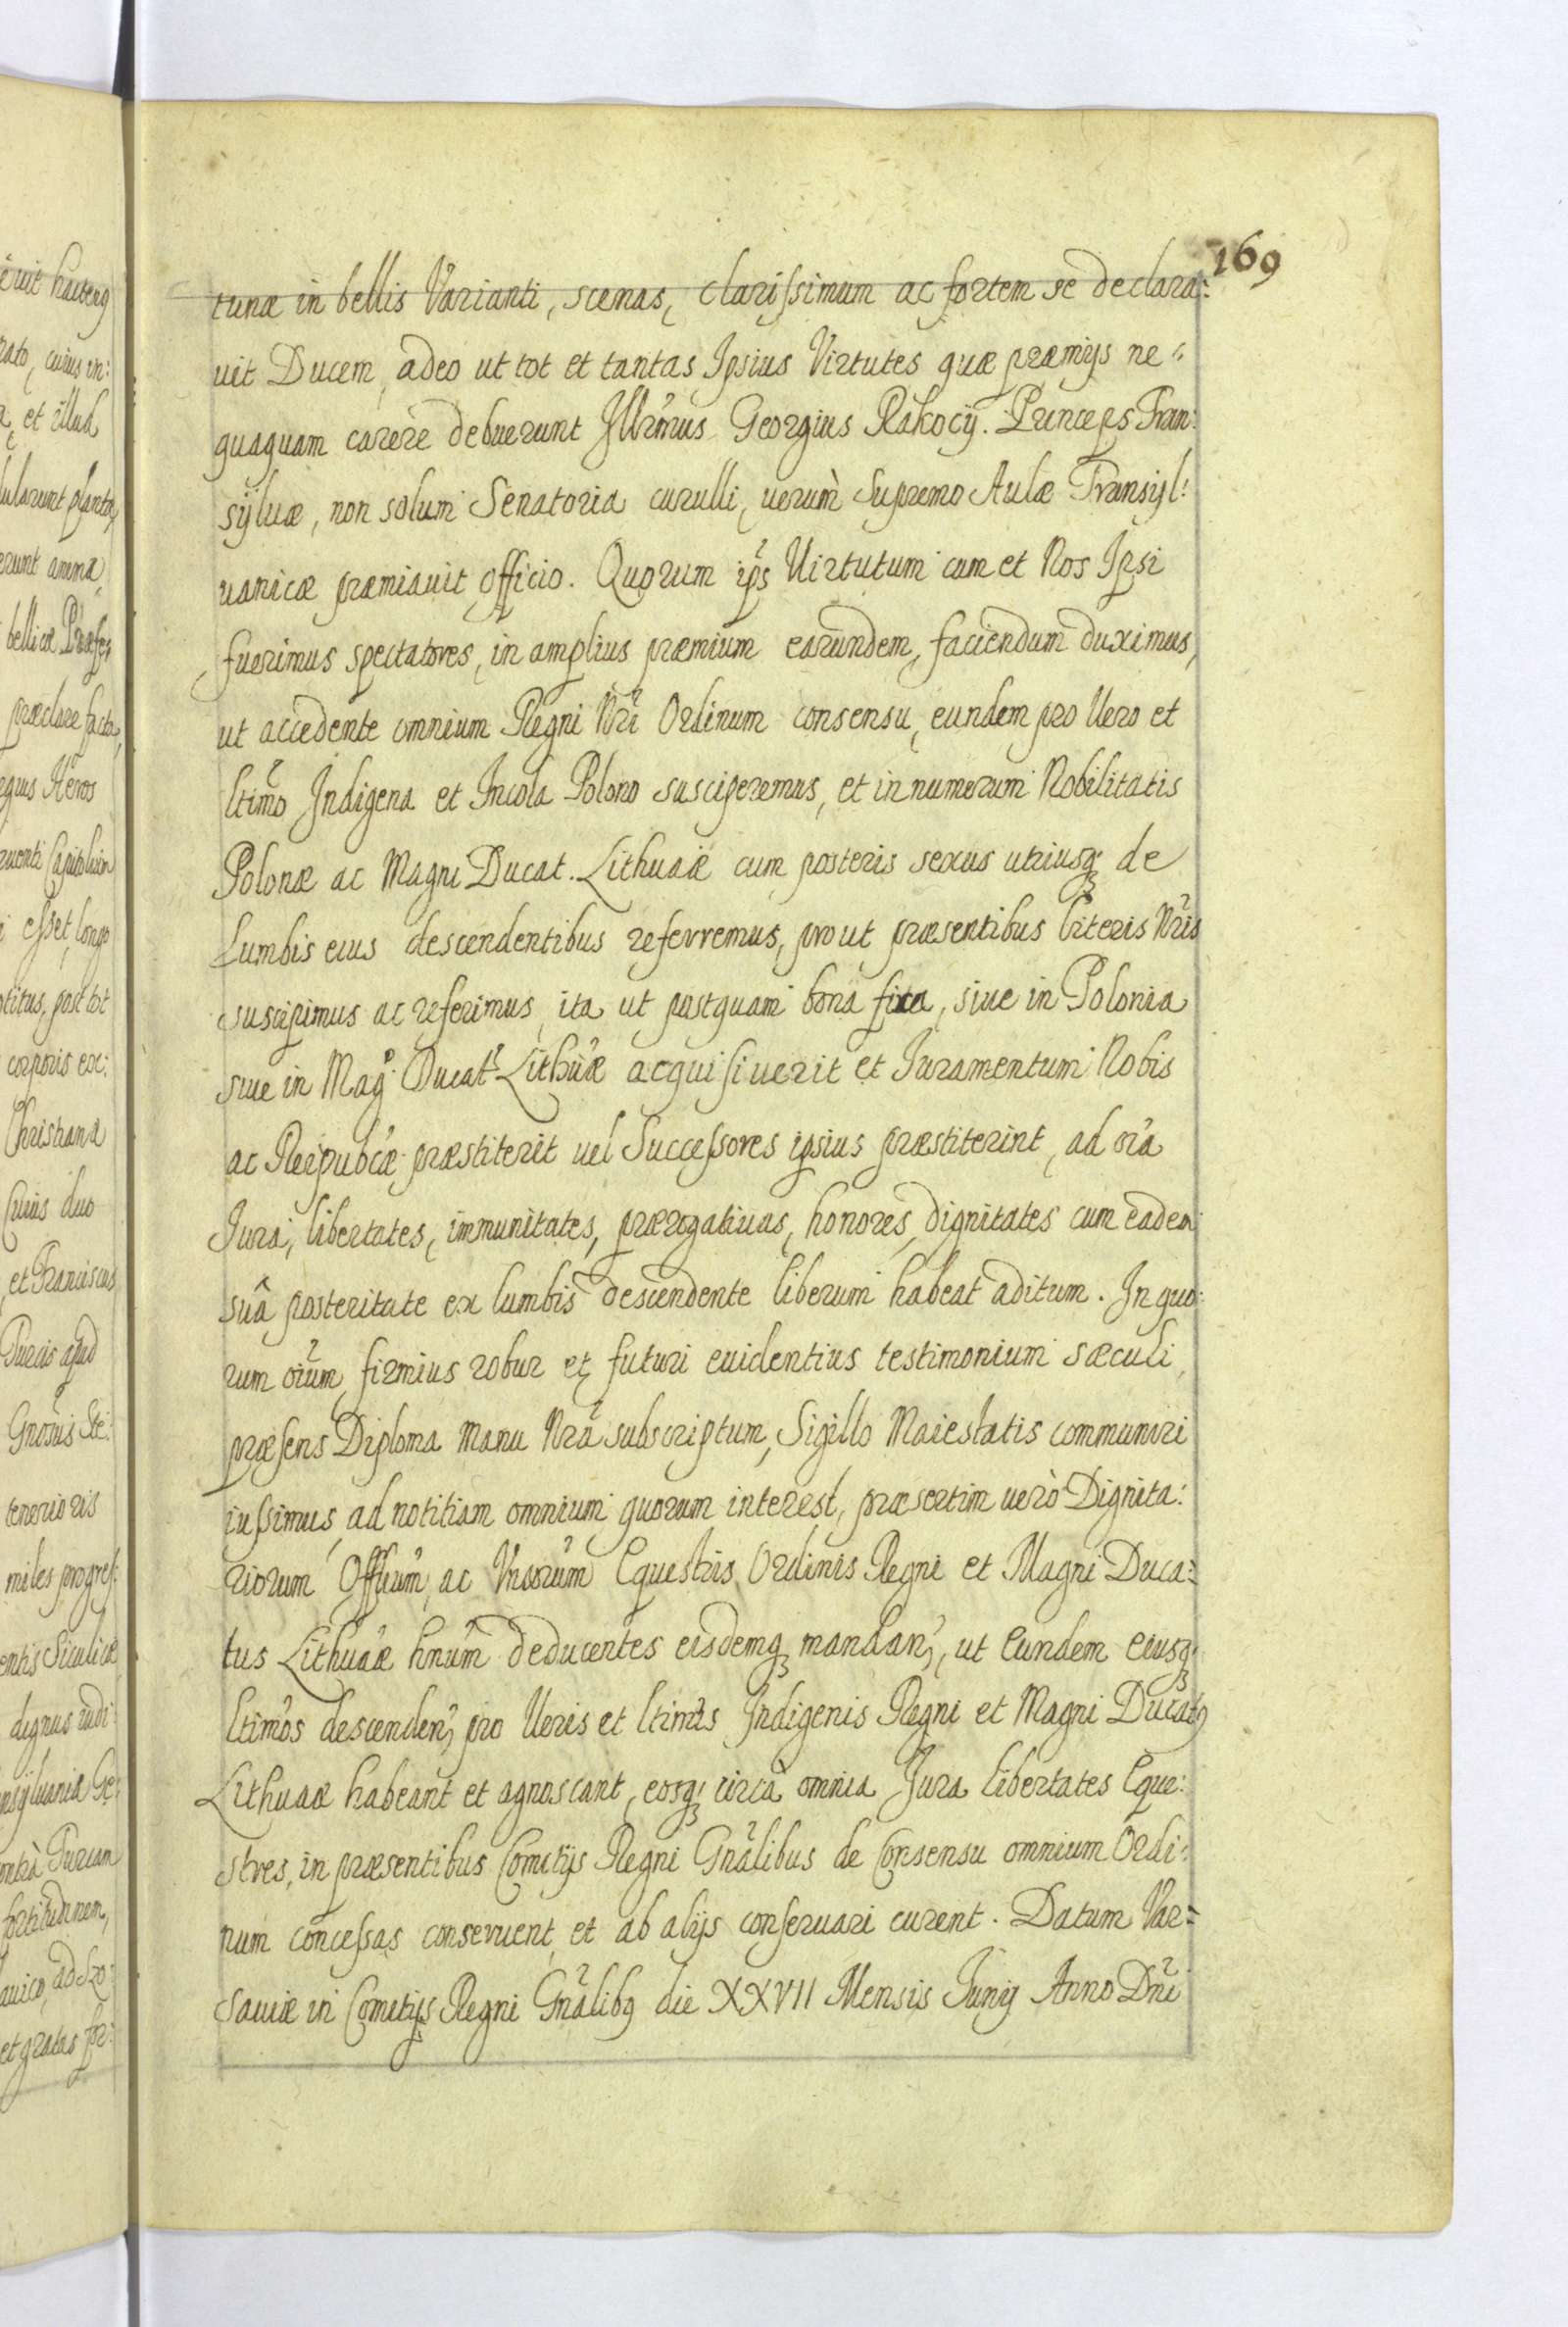 169
tunæ in bellis Varianti, scenas, clarissimum ac fortem se declara:
uit Ducem, adeo ut tot et tantas Ipsius Virtutes quæ præmijs ne:
quaquam carere debuerunt Jllr̃mus Georgius Rakocÿ. Princeps Tran:
sÿluæ, non solum Senatoria curulli, uerum̀ Supremo Aulæ Transÿl:
uanicæ præmiauit officio. Quorum ip̃s Uirtutum cum et Nos Ipsi
fuerimus spectatores, in amplius præmium earundem, faciendum duximus,
ut accedente omnium Regni Nr̃i Ordinum consensu, eundem pro Uero et
ltimõ Indigena et Incola Polono susciperemus, et in numerum Nobilitatis
Polonæ ac Magni Ducat. Lithuaiæ cum posteris sexus utriusq; de
Lumbis eius descendentibus referremus, prout præsentibus literis Nr̃is
suscipimus ac referimus, ita ut postquam bona fixa, siue in Polonia
siue in Mag: Ducat: Lithũæ acquisiuerit et Iuramentum Nobis
ac Reipubcæ præstiterit uel Successores ipsius præstiterint, ad oĩa
Iura, libertates, immunitates, prærogatiuas, honores, dignitates cum eadem
suâ posteritate ex lumbis descendente liberum habeat aditum. In quo:
rum oĩum, firmius robur et futuri euidentius testimonium sæculi,
præsens Diploma Manu Nr̃a subscriptum, Sigillo Maiestatis communiri
iussimus, ad notitiam omnium quorum interest, præsertim uerò Dignita:
riorum Offium̃, ac Vnsorum̃ Equestris Ordinis Regni et Magni Duca:
tus Lithuãæ hñum deducentes eisdemq; mandan;, ut Eundem Eiusq;
ltimõs descenden; pro Ueris et ltimĩs Indigenis Regni et Magni Ducatꝰ
Lithuaæ habeant et agnoscant, eosq; circà omnia Jura libertates Eque:
stres, in præsentibus Comitijs Regni Gnãlibus de Consensu omnium Ordi:
num concessas conseruent et ab alijs conseruari curent. Datum Var:
sauiæ in Comitijs Regni Gnãlibꝰ die XXVII Mensis Junij Anno Dñi